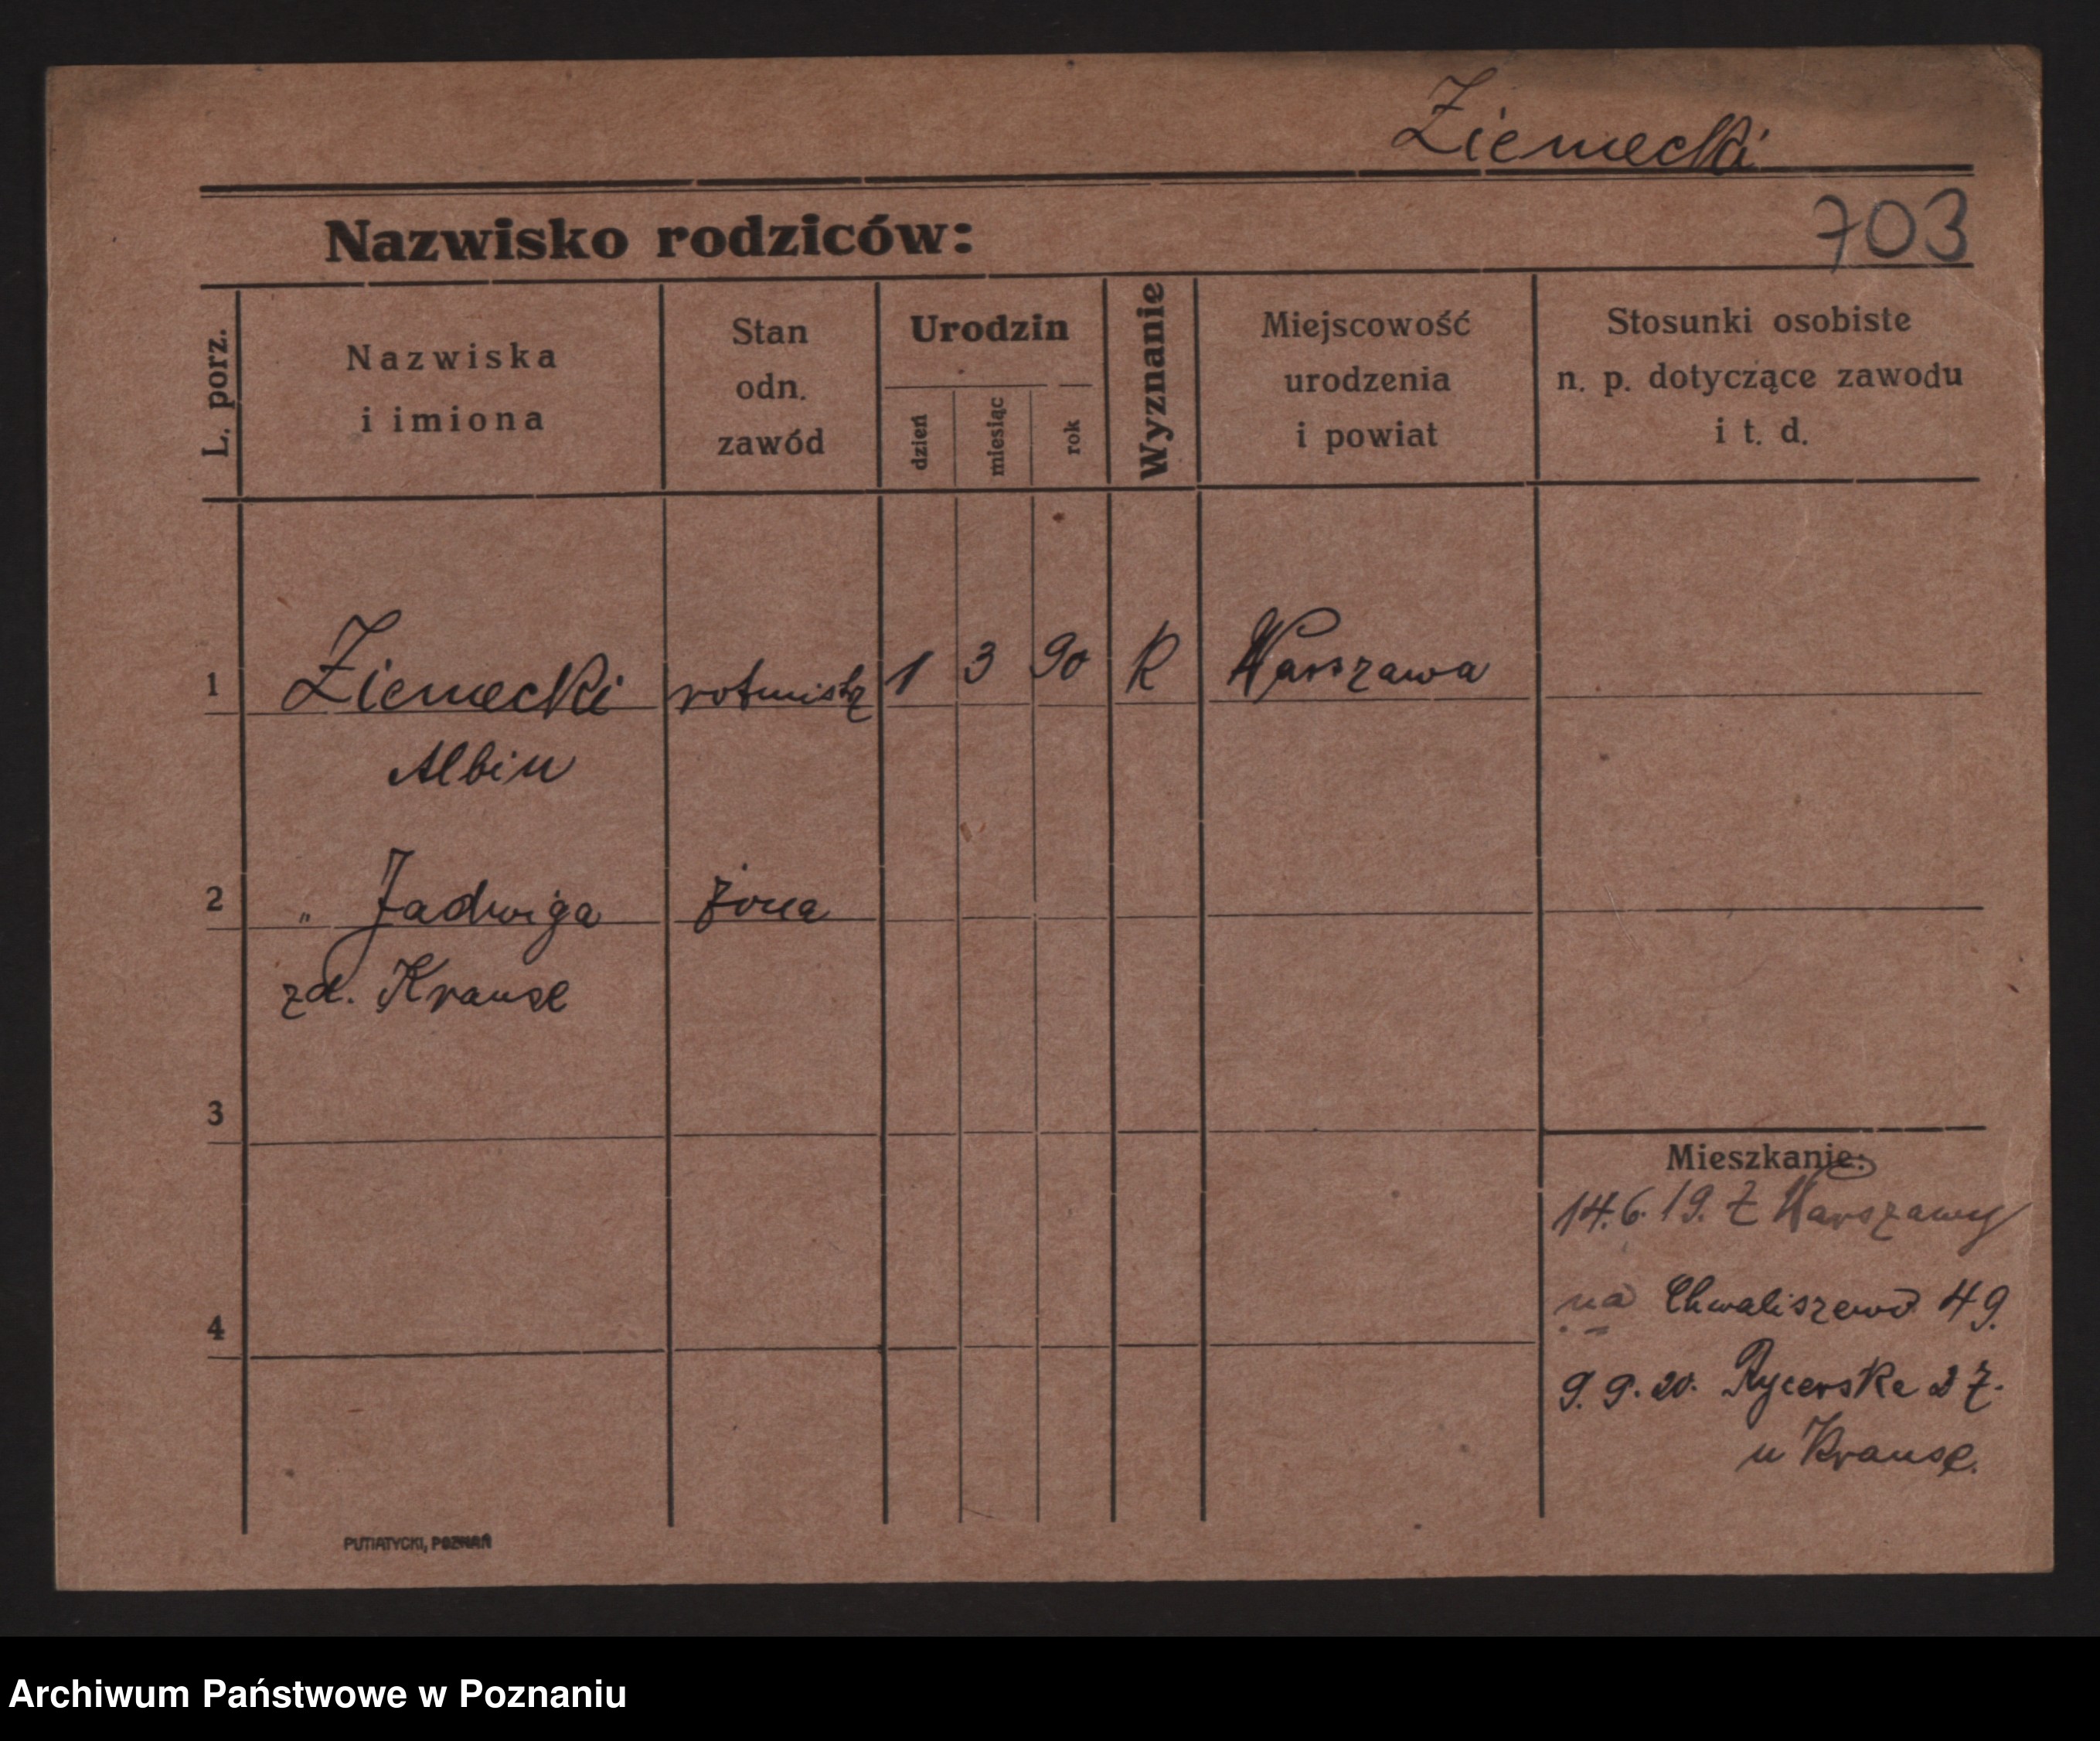 Ziemecki
703
Nazwisko rodziców:
L. porz.
Nazwiska
i imiona
Stan
odn.
zawód
Urodzin
dzień
miesiąc
rok
Wyznanie
Miejscowość
urodzenia
i powiat
Stosunki osobiste
n. p. dotyczące zawodu
i t. d.
1 Ziemecki rotmistrz 1 3 90 R Warszawa
Albin
2 " Jadwiga żona
zd. Krause
3
Mieszkanie:
14.6.19. Z Warszawy
na Chwaliszewo 49.
4
9.9.20. Rycerska 27.
u Krause.
PUTIATYCKI, POZNAŃ
Archiwum Państwowe w Poznaniu